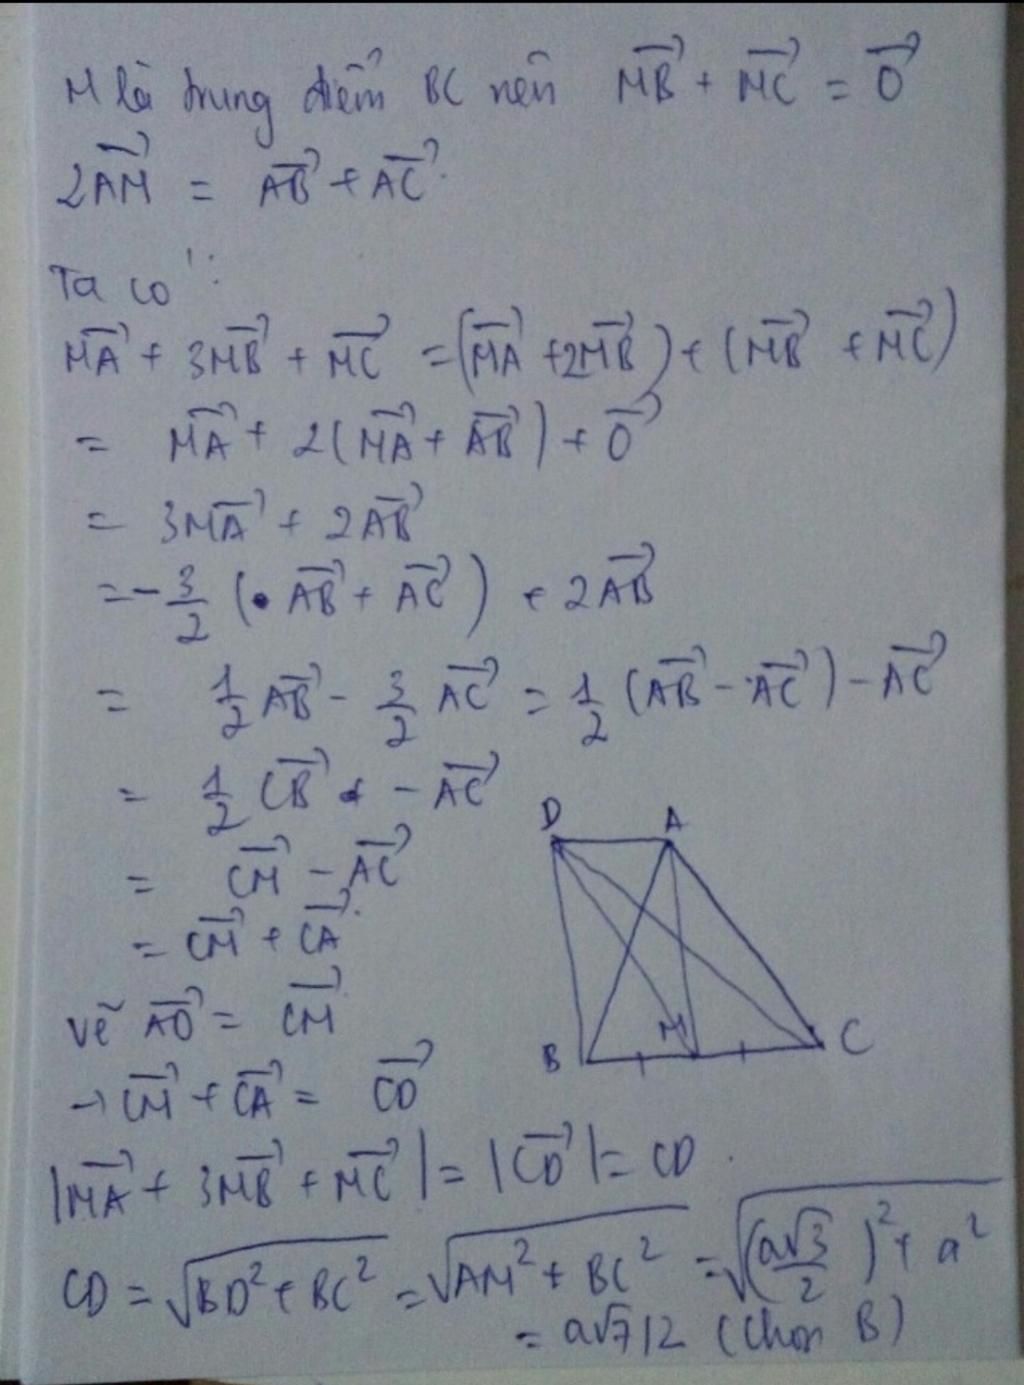 M là trung điểm BC nên MB⃗ + MC⃗ = 0⃗
2AM⃗ = AB⃗ + AC⃗.
Ta có:
MA⃗ + 3MB⃗ + MC⃗ = (MA⃗ + 2MB⃗) + (MB⃗ + MC⃗)
= MA⃗ + 2(MA⃗ + AB⃗) + 0⃗
= 3MA⃗ + 2AB⃗
= -3/2 (AB⃗ + AC⃗) + 2AB⃗
= 1/2 AB⃗ - 3/2 AC⃗ = 1/2 (AB⃗ - AC⃗) - AC⃗
= 1/2 CB⃗ - AC⃗
D A
= CM⃗ - AC⃗
= CM⃗ + CA⃗.
Vẽ AD⃗ = CM⃗
B M C
→ CM⃗ + CA⃗ = CD⃗
|MA⃗ + 3MB⃗ + MC⃗| = |CD⃗| = CD.
CD = √(BD² + BC²) = √(AM² + BC²) = √((a√3/2)² + a²)
= a√7/2 (Chọn B)